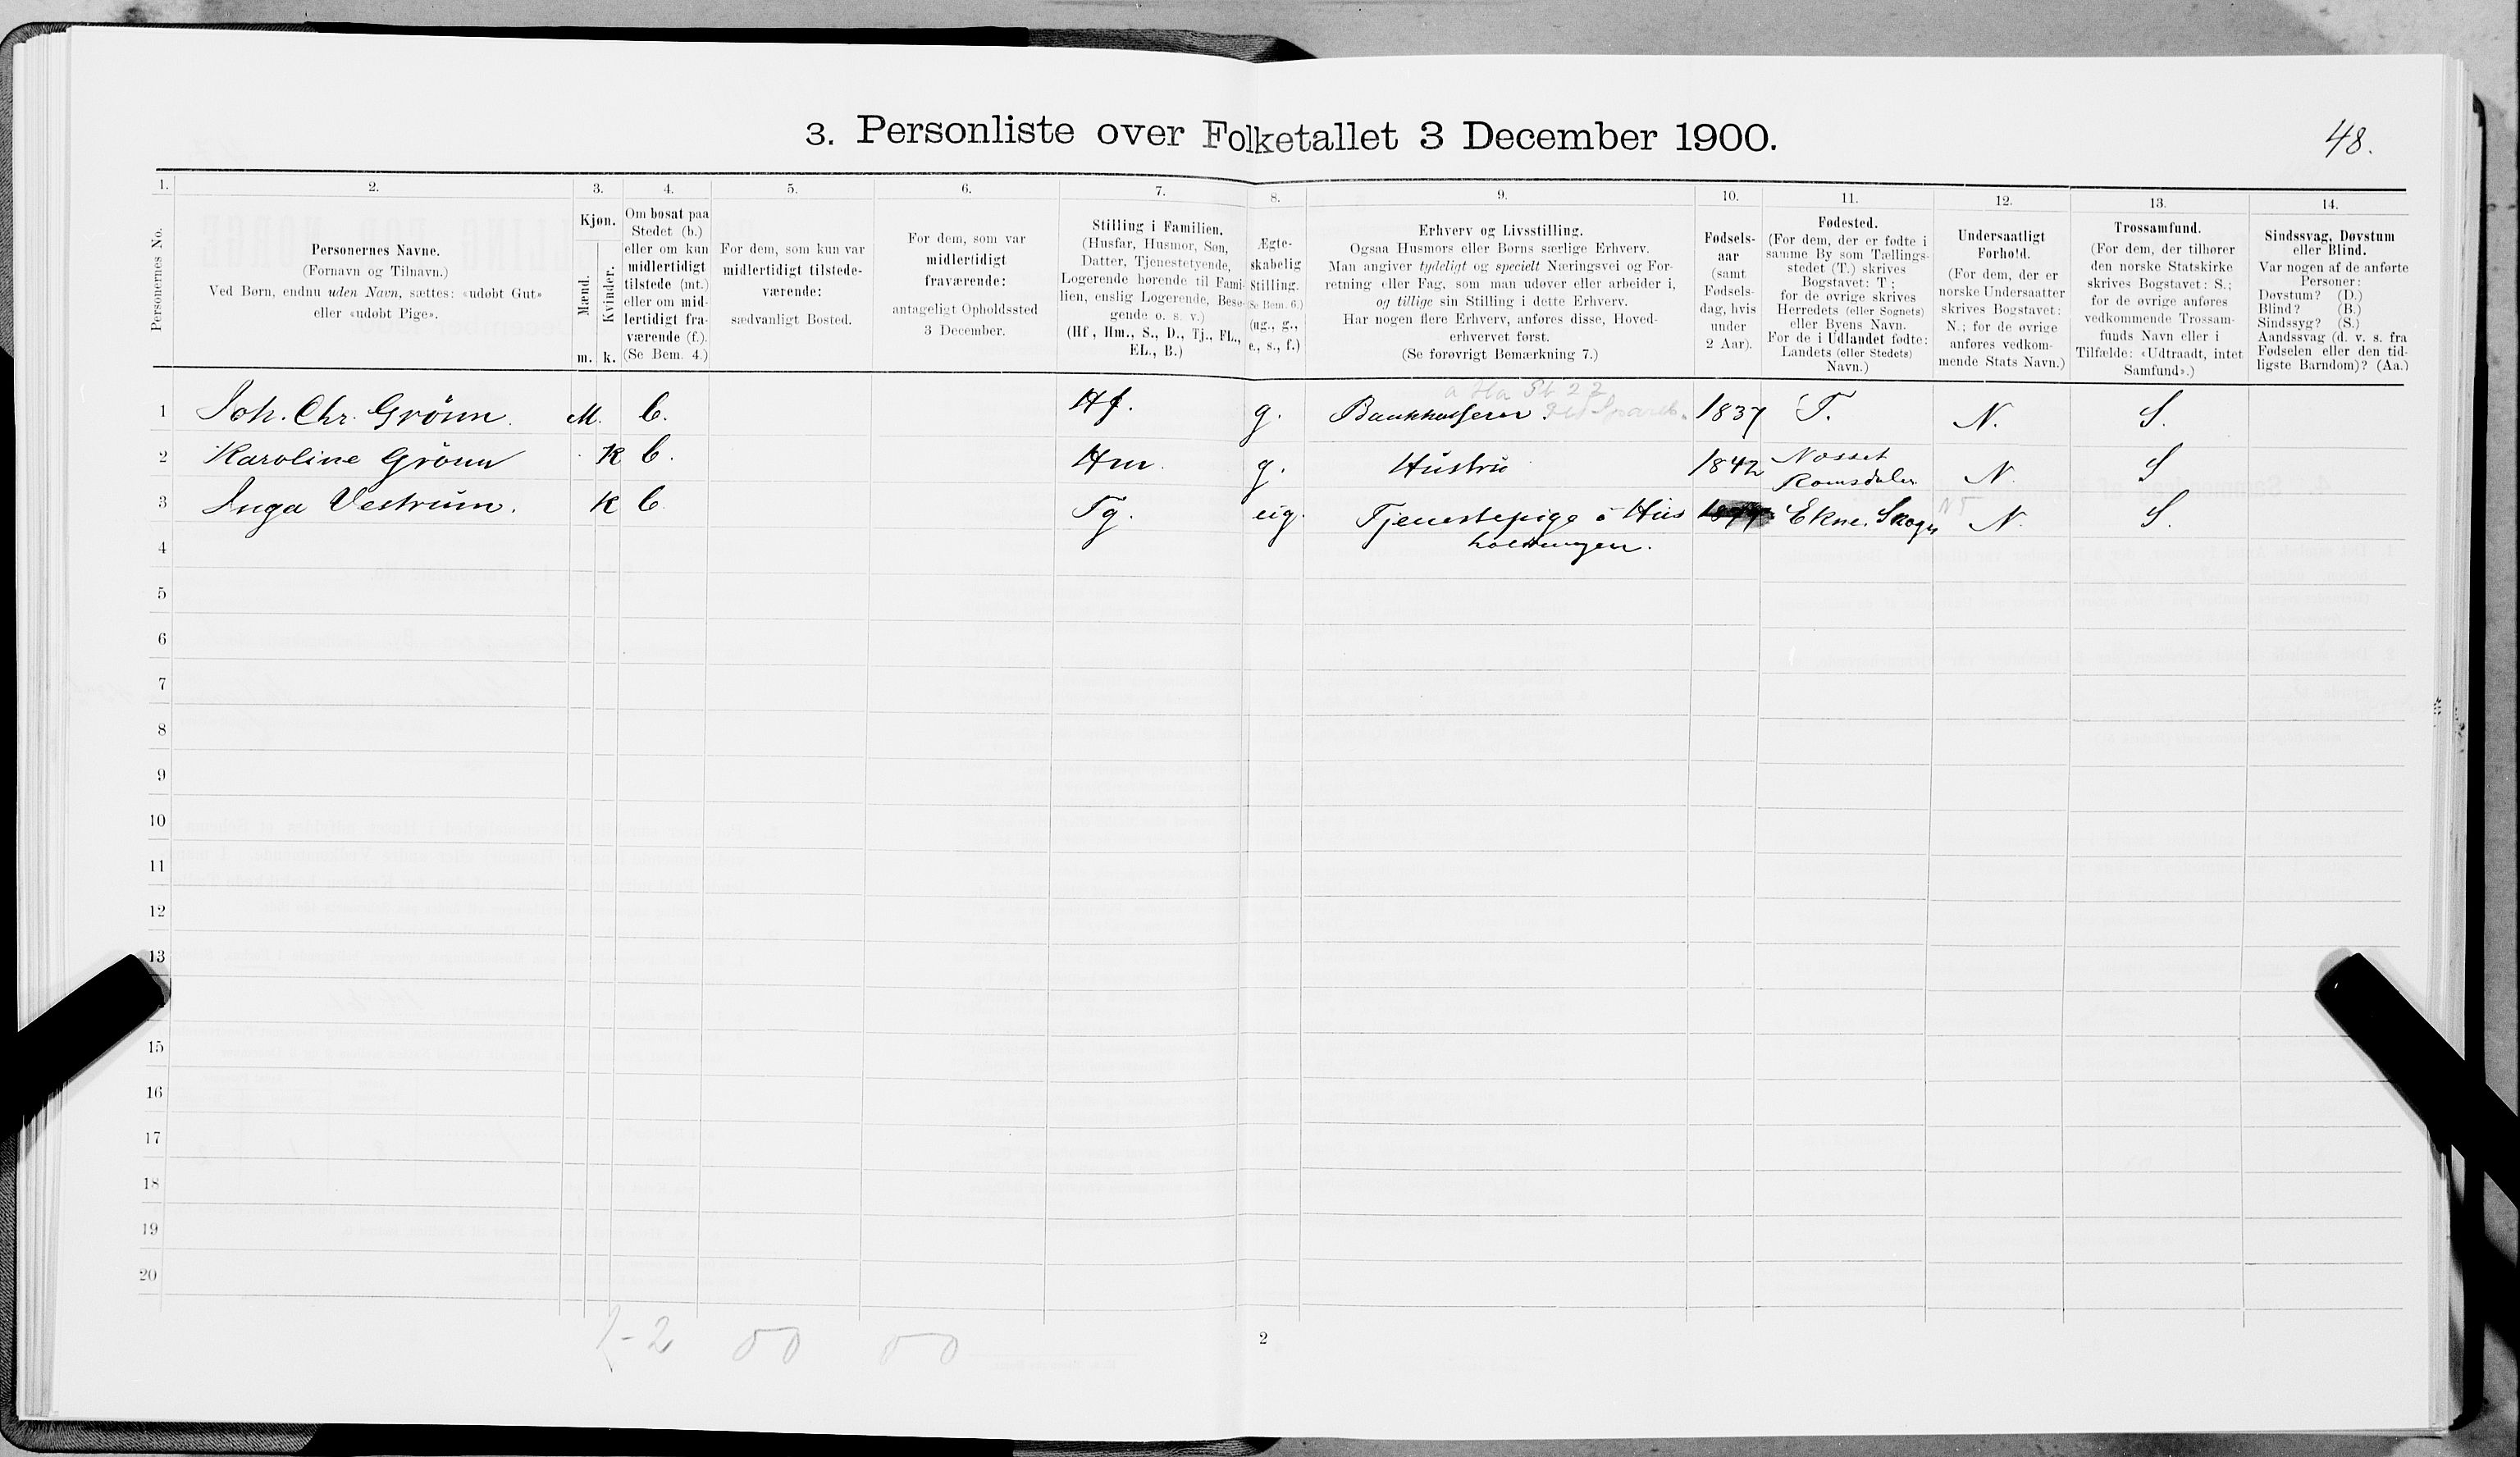 3. Personliste over Folketallet 3 December 1900.
48.
1. 2. 3. 4. 5. 6. 7. 8. 9. 10. 11. 12. 13. 14.
Personernes No.
Personernes Navne.
(Fornavn og Tilnavn.)
Ved Børn, endnu uden Navn, sættes: «udøbt Gut»
eller «udøbt Pige».
Kjøn.
Mænd.
Kvinder.
m. k.
Om bosat paa
Stedet (b.)
eller om kun
midlertidigt
tilstede (mt.)
eller om mid-
lertidigt fra-
værende (f.).
(Se Bem. 4.)
For dem, som kun var
midlertidigt tilstede-
værende:
sædvanligt Bosted.
For dem, som var
midlertidigt
fraværende:
antageligt Opholdssted
3 December.
Stilling i Familien.
(Husfar, Husmor, Søn,
Datter, Tjenestetyende,
Logerende hørende til Fami-
lien, enslig Logerende, Besø-
gende o. s. v.)
(Hf, Hm., S., D., Tj., FL.,
EL., B.)
Ægte-
skabelig
Stilling.
(Se Bem. 6.)
(ug., g.,
e., s., f.)
Erhverv og Livsstilling.
Ogsaa Husmors eller Børns særlige Erhverv.
Man angiver tydeligt og specielt Næringsvei og For-
retning eller Fag, som man udøver eller arbeider i,
og tillige sin Stilling i dette Erhverv.
Har nogen flere Erhverv, anføres disse, Hoved-
erhvervet først.
(Se forøvrigt Bemærkning 7.)
Fødsels-
aar
(samt
Fødsels-
dag, hvis
under
2 Aar).
Fødested.
(For dem, der er fødte i
samme By som Tællings-
stedet (T.) skrives
Bogstavet: T;
for de øvrige skrives
Herredets (eller Sognets)
eller Byens Navn.
For de i Udlandet fødte:
Landets (eller Stedets)
Navn.)
Undersaatligt
Forhold.
(For dem, der er
norske Undersaatter
skrives Bogstavet:
N.; for de øvrige
anføres vedkom-
mende Stats Navn.)
Trossamfund.
(For dem, der tilhører
den norske Statskirke
skrives Bogstavet: S.;
for de øvrige anføres
vedkommende Trossam-
funds Navn eller i
Tilfælde: «Udtraadt, intet
Samfund».)
Sindssvag, Døvstum
eller Blind.
Var nogen af de anførte
Personer:
Døvstum? (D.)
Blind? (B.)
Sindssyg? (S.)
Aandssvag (d. v. s. fra
Fødselen eller den tid-
ligste Barndom)? (Aa.)
1 Joh. Chr. Grönn. M. b. Hf. g. 1837 T. N. S.
2 Karoline Grönn K b. Hm. g. Hustru 1842 Nosset Romsdalen N. S
3 Inga Vestrum. K b Tg. ug. Tjenestepige i Hus Ekne. Skogn N. S.
4 holdningen.
5
6
7
8
9
10
11
12
13
15
16
17
18
19
20
1-2 00 00
2